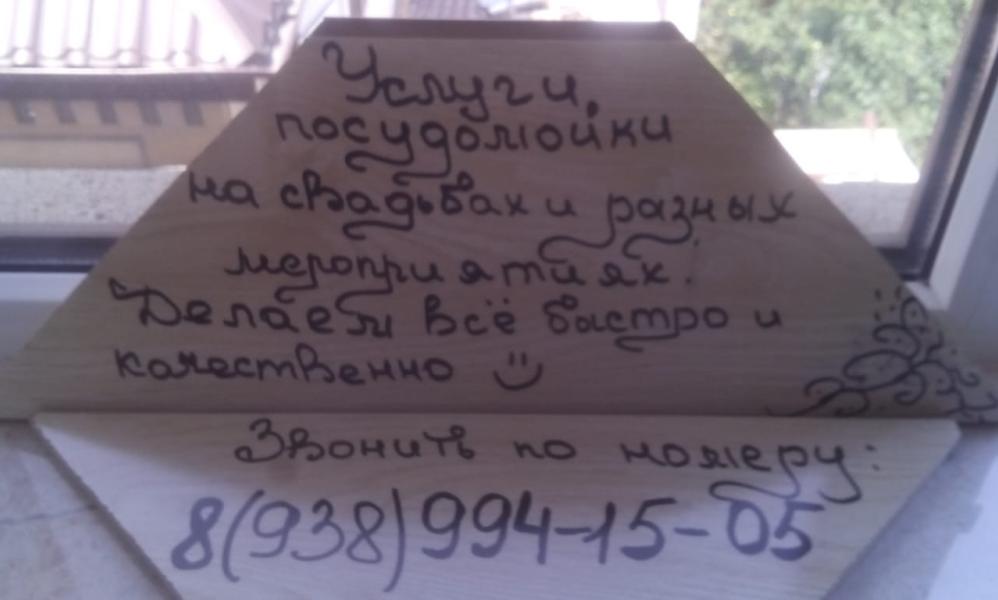 Услуги
посудомойки
на свадьбах и разных
мероприятиях.
Делаем всё быстро и
качественно
Звонить по номеру:
8(938)994-15-05